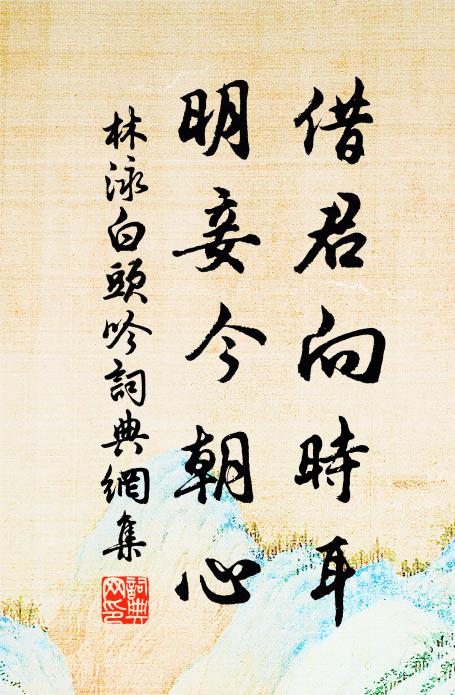 借君向時耳
明妾今朝心
林泳白頭吟詞典網集
詞典